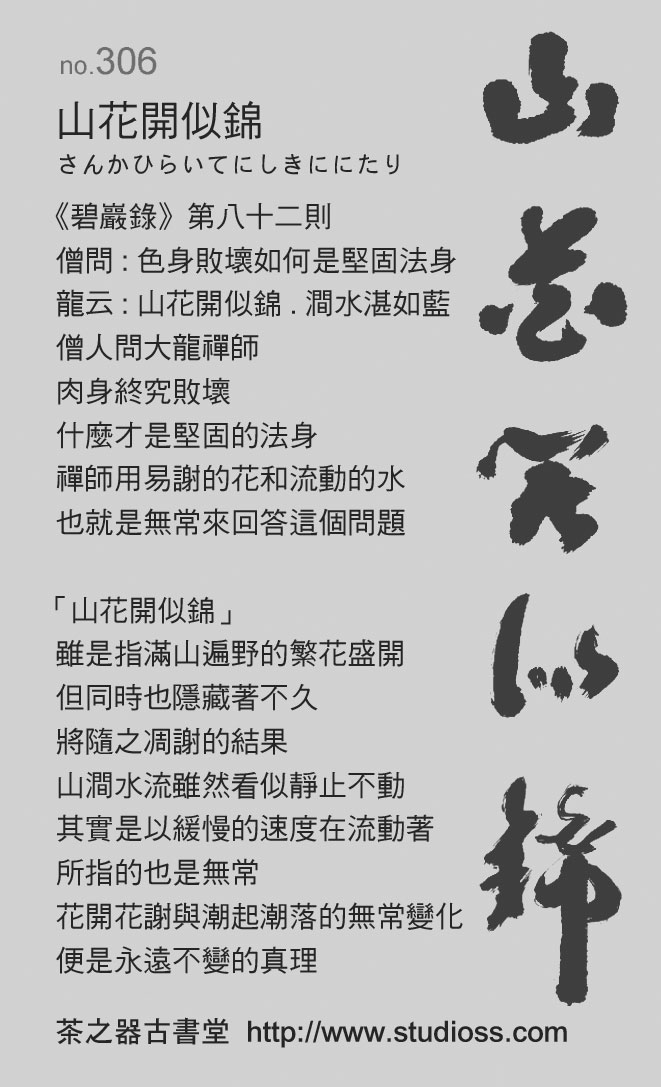 no.306
山花開似錦
さんかひらいてにしきににたり
《碧巖錄》第八十二則
僧問:色身敗壞如何是堅固法身
龍云:山花開似錦.澗水湛如藍
僧人問大龍禪師
肉身終究敗壞
什麼才是堅固的法身
禪師用易謝的花和流動的水
也就是無常來回答這個問題
「山花開似錦」
雖是指滿山遍野的繁花盛開
但同時也隱藏著不久
將隨之凋謝的結果
山澗水流雖然看似靜止不動
其實是以緩慢的速度在流動著
所指的也是無常
花開花謝與潮起潮落的無常變化
便是永遠不變的真理
茶之器古書堂 http://www.studioss.com
山花開似錦